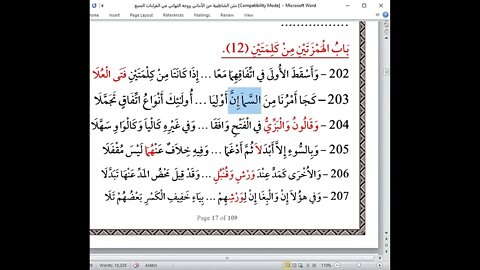 متن الشاطبية حرز الأماني ووجه التهاني في القراءات السبع [Compatibility Mode] - Microsoft Word
بَابُ الْهَمْزَتَيْنِ مِنْ كَلِمَتَيْنِ (12).
202 – وَأَسْقَطَ الأُولَى فِي اتِّفَاقِهِمَا مَعًا ... إِذَا كَانَتَا مِنْ كِلْمَتَيْنِ فَتَى الْعُلَا
203 – كَجَا أَمْرُنَا مِنَ السَّمَا إِنَّ أَوْلِيَا ... أُولَئِكَ أَنْوَاعُ اتِّفَاقٍ تَجَمَّلَا
204 – وَقَالُونُ وَالْبَزِّيُّ فِي الْفَتْحِ وَافَقَا ... وَفِي غَيْرِهِ كَالْيَا وَكَالْوَاوِ سَهَّلَا
205 – وَبِالسُّوءِ إِلاَّ أَبْدَلاَ ثُمَّ أَدْغَمَا ... وَفِيهِ خِلاَفٌ عَنْهُمَا لَيْسَ مُقْفَلَا
206 – وَالأُخْرَى كَمَدٍّ عِنْدَ وَرْشٍ وَقُنْبُلٍ ... وَقَدْ قِيلَ مَحْضُ المَدِّ عَنْهَا تَبَدَّلَا
207 – وَفِي هؤُلاَ إِنْ وَالْبِغَا إِنْ لِوَرْشِهِمْ ... بِيَاءِ خَفِيفِ الْكَسْرِ بَعْضُهُمْ تَلَا
Page 17 of 109
Words: 18,329 Arabic 110%